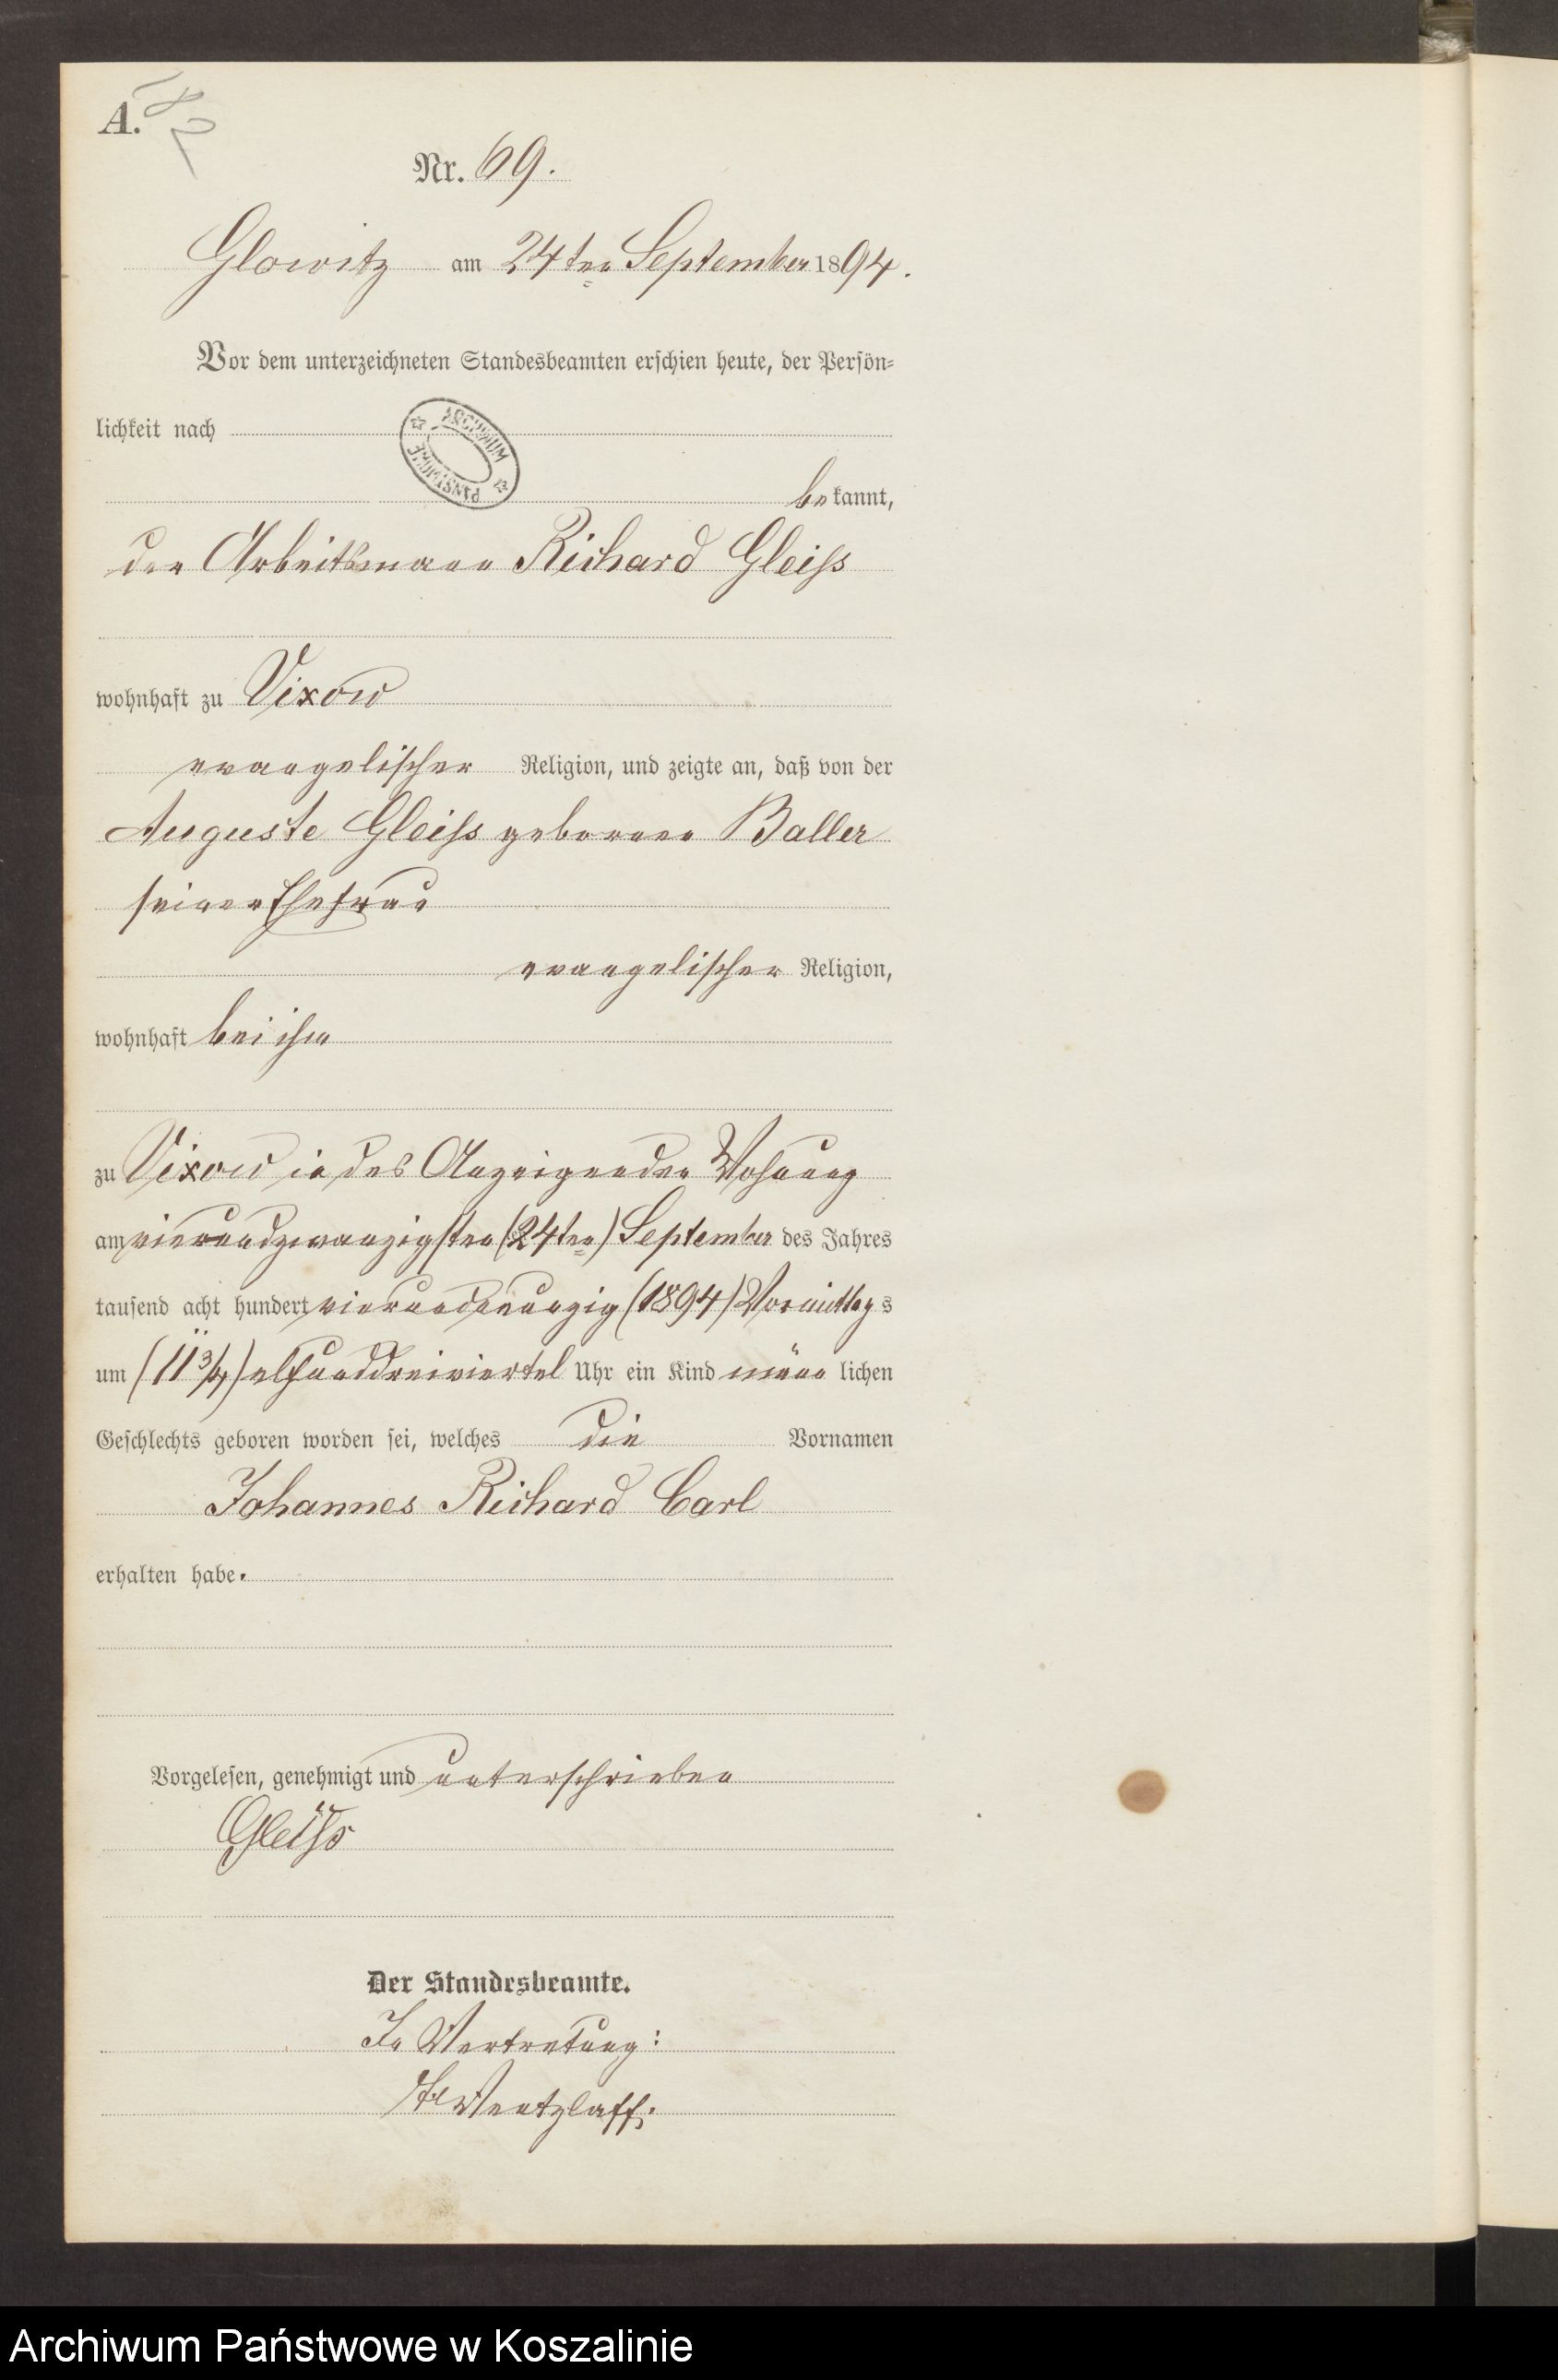 A.
Nr. 69.
Glowitz am 24ten September 1894.
Vor dem unterzeichneten Standesbeamten erschien heute, der Persön-
lichkeit nach
ARCHIWUM PAŃSTWOWE
bekannt,
der Arbeitsmann Richard Gleiss
wohnhaft zu Vixow
evangelischer Religion, und zeigte an, daß von der
Auguste Gleiss geborenen Baller
seiner Ehefrau
evangelischer Religion,
wohnhaft bei ihm
zu Vixow in des Anzeigenden Wohnung
am vierundzwanzigsten (24ten) September des Jahres
tausend acht hundert vierundneunzig (1894) Vormittags
um (11 3/4) elfunddreiviertel Uhr ein Kind männlichen
Geschlechts geboren worden sei, welches die Vornamen
Johannes Richard Carl
erhalten habe.
Vorgelesen, genehmigt und unterschrieben
Gleiss
Der Standesbeamte.
In Vertretung:
Wentzlaff.
Archiwum Państwowe w Koszalinie